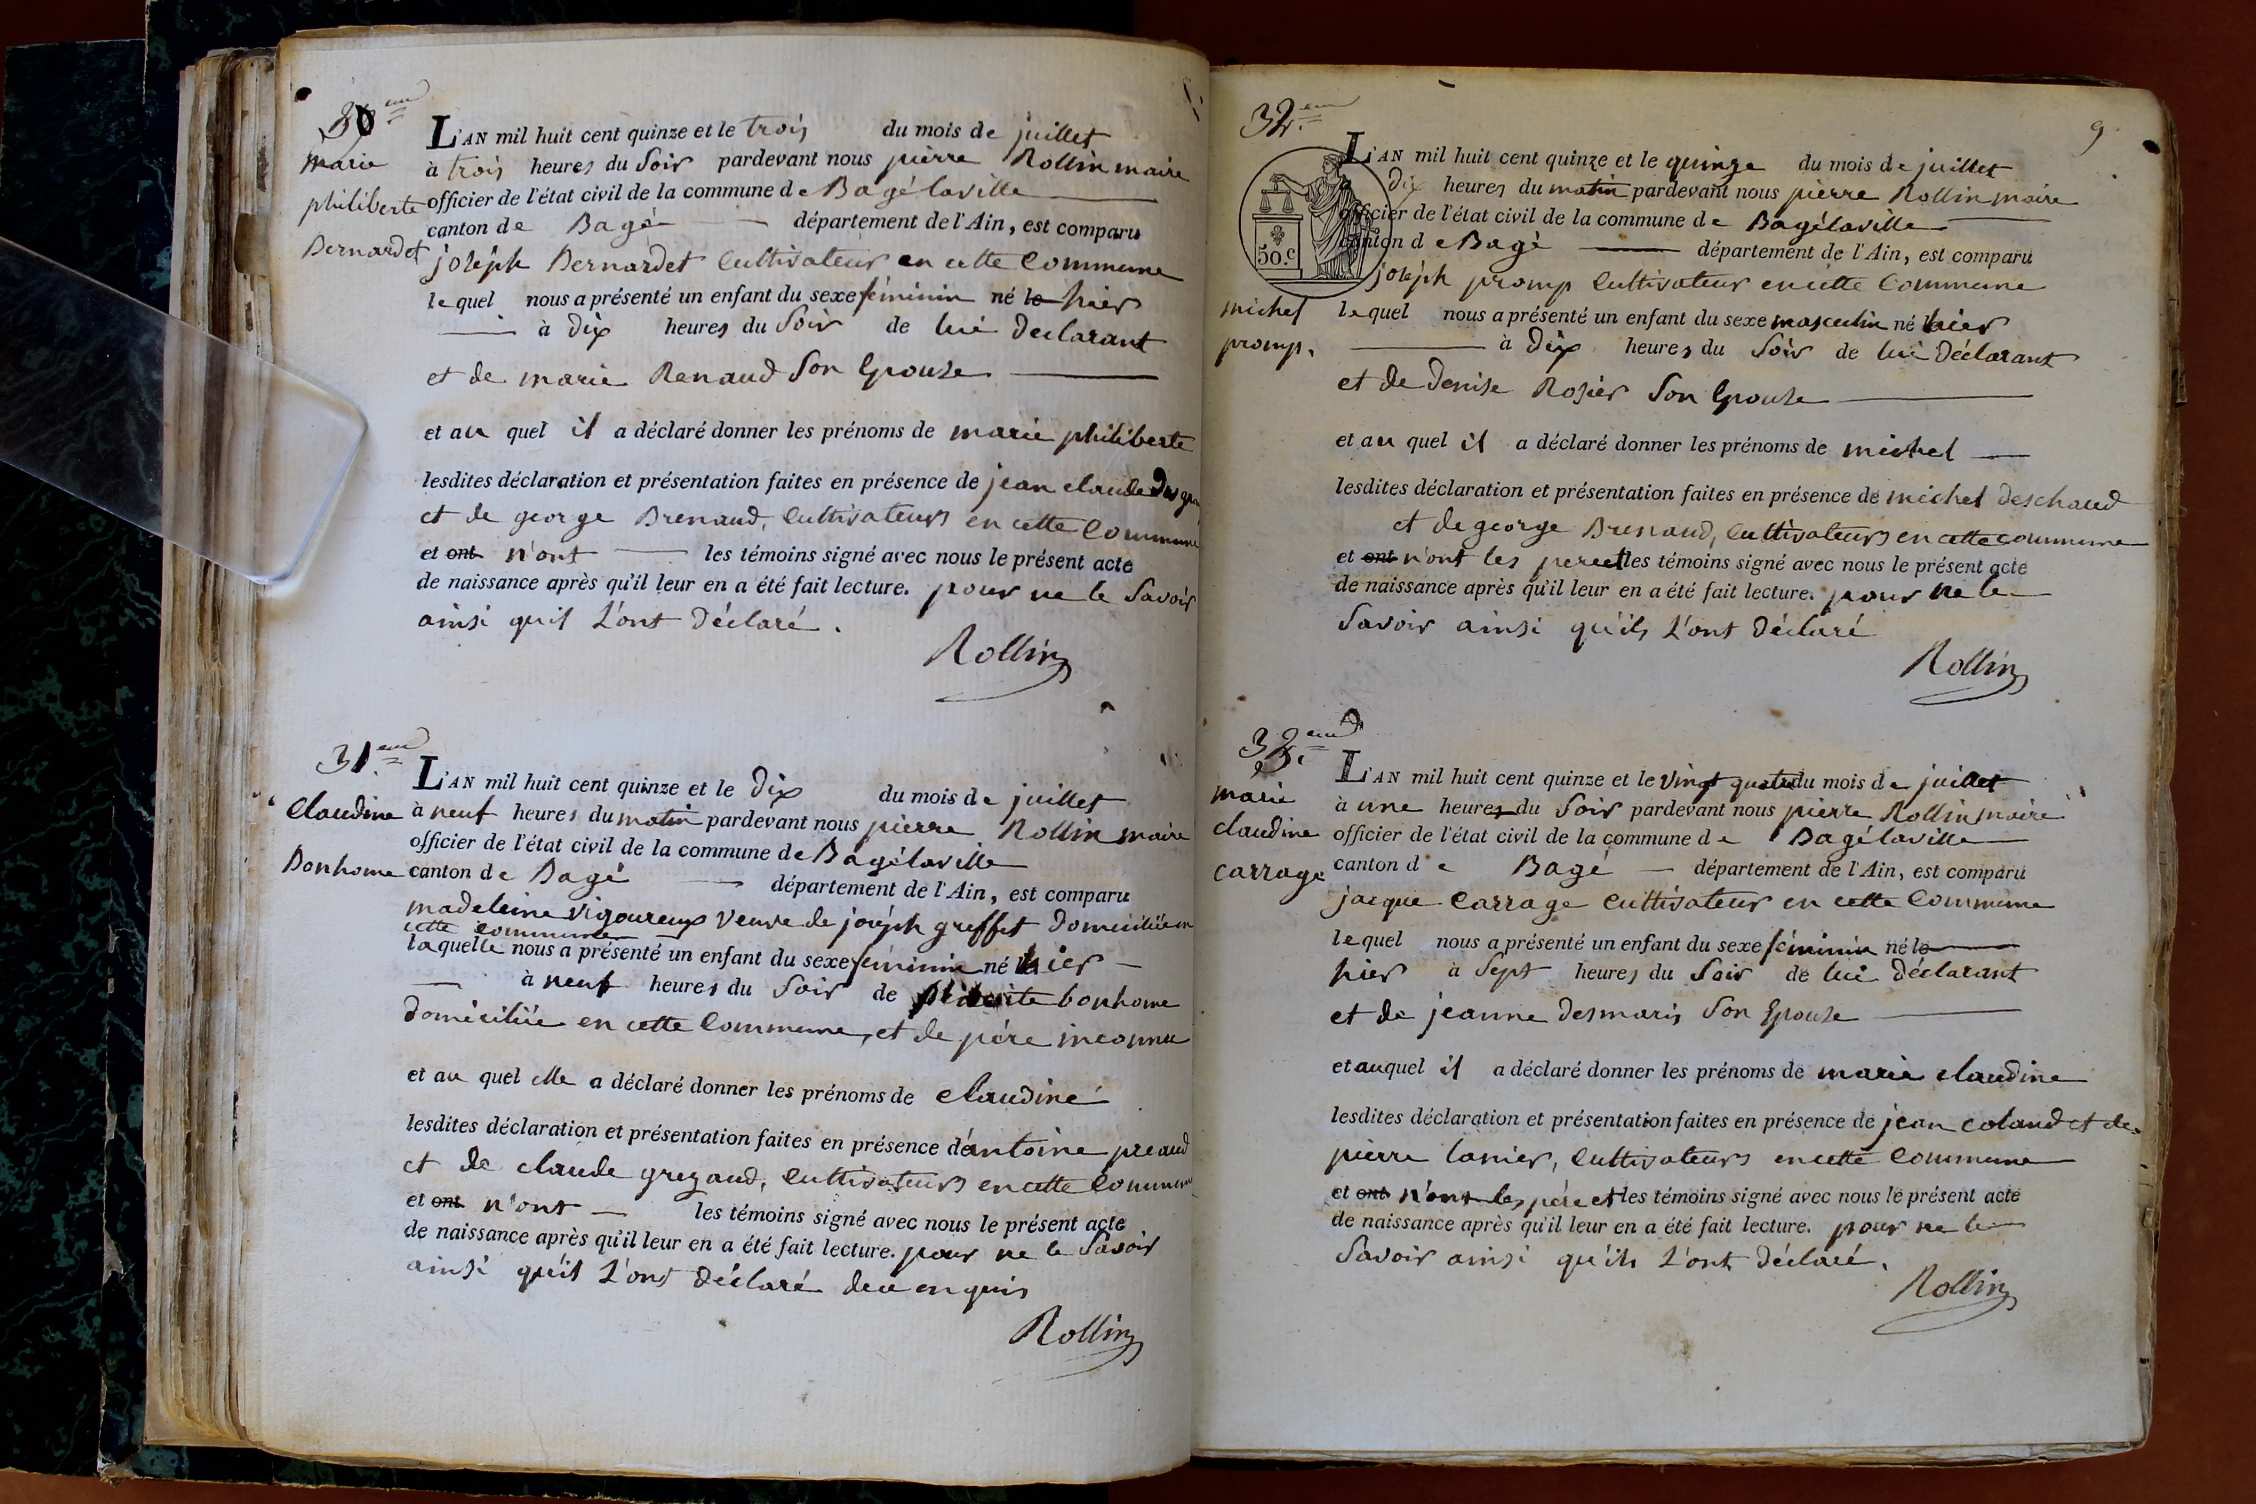 30.eme
marie
philiberte
Bernardet
L'AN mil huit cent quinze et le trois du mois de juillet
à trois heures du soir pardevant nous pierre Rollin maire
officier de l'état civil de la commune de Bagélaville
canton de Bagé département de l'Ain, est comparu
joseph Bernardet cultivateur en cette commune
lequel nous a présenté un enfant du sexe féminin né le hier
à dix heures du soir de lui declarant
et de marie Renaud son Epouse
et au quel il a déclaré donner les prénoms de marie philiberte
lesdites déclaration et présentation faites en présence de jean claude
et de george Brenaud, cultivateurs en cette commune
et ont n'ont les témoins signé avec nous le présent acte
de naissance après qu'il leur en a été fait lecture. pour ne le savoir
ainsi quil l'ont déclaré.
Rollin
31.eme
Claudine
Bonhome
L'AN mil huit cent quinze et le dix du mois de juillet
à neuf heures du matin pardevant nous pierre Rollin maire
officier de l'état civil de la commune de Bagélaville
canton de Bagé département de l'Ain, est comparu
madeleine vigoureux veuve de joseph greffet domiciliée en
cette commune
laquelle nous a présenté un enfant du sexe féminin né hier
à neuf heures du soir de bonhome
domiciliée en cette commune, et de père inconnu
et au quel elle a déclaré donner les prénoms de claudine
lesdites déclaration et présentation faites en présence d'antoine preaud
et de claude gregaud, cultivateurs en cette commune
et ont n'ont les témoins signé avec nous le présent acte
de naissance après qu'il leur en a été fait lecture. pour ne le savoir
ainsi qu'il l'ont déclaré de ce enquis
Rollin
9
32.eme
50.c
michel
promp.
L'AN mil huit cent quinze et le quinze du mois de juillet
dix heures du matin pardevant nous pierre Rollin maire
officier de l'état civil de la commune de Bagélaville
canton de Bagé département de l'Ain, est comparu
joseph promp cultivateur en cette commune
lequel nous a présenté un enfant du sexe masculin né hier
à dix heures du soir de lui déclarant
et de denise Rosier son Epouse
et au quel il a déclaré donner les prénoms de michel
lesdites déclaration et présentation faites en présence de michel deschaud
et de george Brenaud, cultivateurs en cette commune
et ont n'ont les pere et les témoins signé avec nous le présent acte
de naissance après qu'il leur en a été fait lecture. pour ne le
savoir ainsi qu'ils l'ont déclaré
Rollin
33.eme
marie
claudine
carrage
L'AN mil huit cent quinze et le vingt quatre du mois de juillet
à une heures du soir pardevant nous pierre Rollin maire
officier de l'état civil de la commune de Bagélaville
canton de Bagé département de l'Ain, est comparu
jacque carrage cultivateur en cette commune
lequel nous a présenté un enfant du sexe féminin né le
hier à sept heures du soir de lui déclarant
et de jeanne desmaris son Epouse
et auquel il a déclaré donner les prénoms de marie claudine
lesdites déclaration et présentation faites en présence de jean coland et de
pierre lanier, cultivateurs en cette commune
et ont n'ont les père et les témoins signé avec nous le présent acte
de naissance après qu'il leur en a été fait lecture. pour ne le
savoir ainsi qu'ils l'ont déclaré.
Rollin